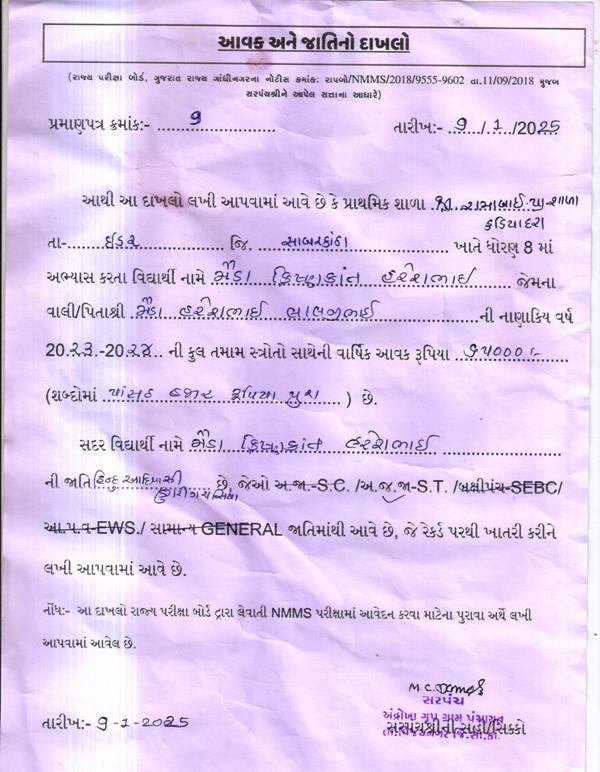 આવક અને જાતિનો દાખલો
(રાજ્ય પરીક્ષા બોર્ડ, ગુજરાત રાજ્ય ગાંધીનગરના નોટીસ ક્રમાંક: રાપબો/NMMS/2018/9555-9602 તા.11/09/2018 મુજબ
સરપંચશ્રીને આપેલ સત્તાના આધારે)
પ્રમાણપત્ર ક્રમાંક:- 9
તારીખ:- 9/1/2025
આથી આ દાખલો લખી આપવામાં આવે છે કે પ્રાથમિક શાળા
કડિયાદરા
તા- ઇડર જિ. સાબરકાંઠા ખાતે ધોરણ 8 માં
અભ્યાસ કરતા વિદ્યાર્થી નામે ક્રિષ્ણકાંત હરેશભાઇ જેમના
વાલી/પિતાશ્રી હરેશભાઇ લાલજીભાઇ ની નાણાકિય વર્ષ
20.૨૩.-20.૨૪.. ની કુલ તમામ સ્ત્રોતો સાથેની વાર્ષિક આવક રૂપિયા
(શબ્દોમાં હજાર રૂપિયા પુરા ) છે.
સદર વિદ્યાર્થી નામે ક્રિષ્ણકાંત હરેશભાઇ
ની જાતિ હિન્દુ આદિવાસી છે, જેઓ અ.જા.-S.C. /અ.જ.જા-S.T. /બક્ષીપંચ-SEBC/
ડુંગરી ગરાસિયા
આ.પ.વ-EWS./ સામાન્ય GENERAL જાતિમાંથી આવે છે, જે રેકર્ડ પરથી ખાતરી કરીને
લખી આપવામાં આવે છે.
નોંધ:- આ દાખલો રાજ્ય પરીક્ષા બોર્ડ દ્વારા લેવાતી NMMS પરીક્ષામાં આવેદન કરવા માટેના પુરાવા અર્થે લખી
આપવામાં આવેલ છે.
M.C.
સરપંચ
ગ્રુપ ગ્રામ પંચાયત
તારીખ:- 9-1-2025
સરપંચશ્રીની સહી/સિક્કો
તા.વિજયનગર જિ.સા.કાં.